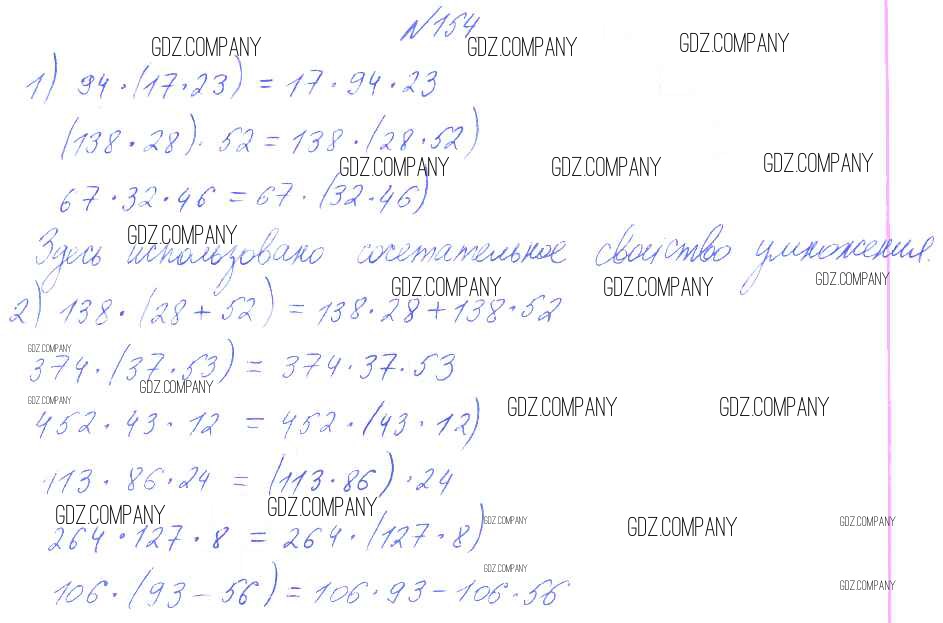 №154
GDZ.COMPANY GDZ.COMPANY GDZ.COMPANY
1) 94·(17·23) = 17·94·23
GDZ.COMPANY
(138·28)·52 = 138·(28·52)
GDZ.COMPANY GDZ.COMPANY GDZ.COMPANY
67·32·46 = 67·(32·46)
GDZ.COMPANY
Здесь использовано сочетательное свойство умножения.
GDZ.COMPANY GDZ.COMPANY GDZ.COMPANY
2) 138·(28+52) = 138·28+138·52
GDZ.COMPANY
374·(37·53) = 374·37·53
GDZ.COMPANY
GDZ.COMPANY GDZ.COMPANY GDZ.COMPANY
452·43·12 = 452·(43·12)
113·86·24 = (113·86)·24
GDZ.COMPANY GDZ.COMPANY GDZ.COMPANY GDZ.COMPANY GDZ.COMPANY
264·127·8 = 264·(127·8)
GDZ.COMPANY GDZ.COMPANY
106·(93-56) = 106·93-106·56